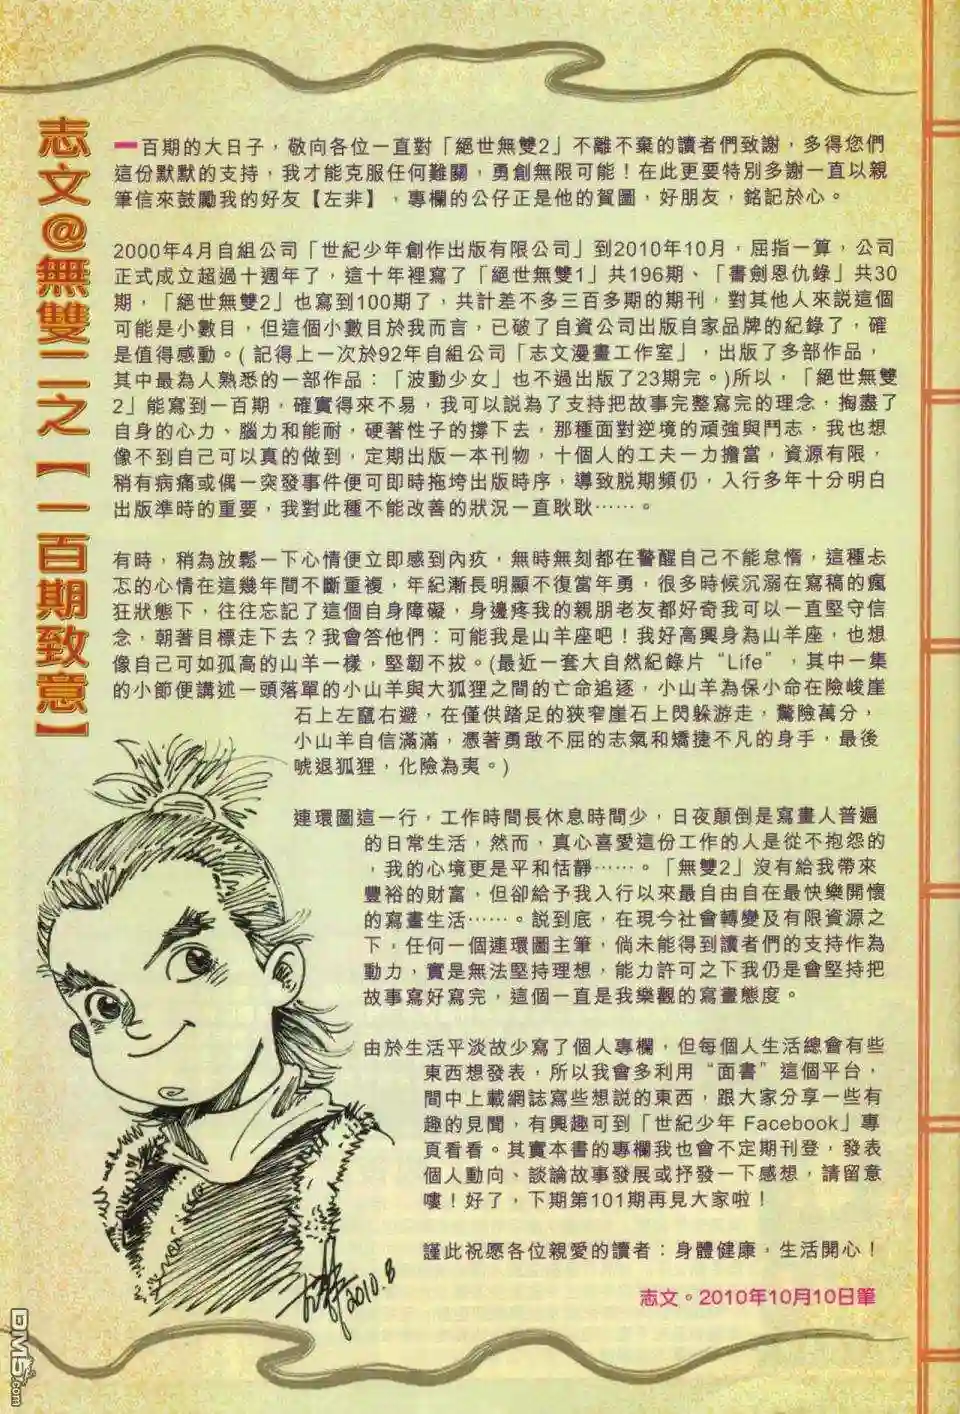 志文@無雙二之【一百期致意】
一百期的大日子，敬向各位一直對「絕世無雙2」不離不棄的讀者們致謝，多得您們
這份默默的支持，我才能克服任何難關，勇創無限可能！在此更要特別多謝一直以親
筆信來鼓勵我的好友【左非】，專欄的公仔正是他的賀圖，好朋友，銘記於心。
2000年4月自組公司「世紀少年創作出版有限公司」到2010年10月，屈指一算，公司
正式成立超過十週年了，這十年裡寫了「絕世無雙1」共196期、「書劍恩仇錄」共30
期，「絕世無雙2」也寫到100期了，共計差不多三百多期的期刊，對其他人來説這個
可能是小數目，但這個小數目於我而言，已破了自資公司出版自家品牌的紀錄了，確
是值得感動。( 記得上一次於92年自組公司「志文漫畫工作室」，出版了多部作品，
其中最為人熟悉的一部作品：「波動少女」也不過出版了23期完。)所以，「絕世無雙
2」能寫到一百期，確實得來不易，我可以説為了支持把故事完整寫完的理念，掏盡了
自身的心力、腦力和能耐，硬著性子的撐下去，那種面對逆境的頑強與鬥志，我也想
像不到自己可以真的做到，定期出版一本刊物，十個人的工夫一力擔當，資源有限，
稍有病痛或偶一突發事件便可即時拖垮出版時序，導致脱期頻仍，入行多年十分明白
出版準時的重要，我對此種不能改善的狀況一直耿耿⋯⋯。
有時，稍為放鬆一下心情便立即感到內疚，無時無刻都在警醒自己不能怠惰，這種忐
忑的心情在這幾年間不斷重複，年紀漸長明顯不復當年勇，很多時候沉溺在寫稿的瘋
狂狀態下，往往忘記了這個自身障礙，身邊疼我的親朋老友都好奇我可以一直堅守信
念，朝著目標走下去？我會答他們：可能我是山羊座吧！我好高興身為山羊座，也想
像自己可如孤高的山羊一樣，堅韌不拔。(最近一套大自然紀錄片“Life”，其中一集
的小節便講述一頭落單的小山羊與大狐狸之間的亡命追逐，小山羊為保小命在險峻崖
石上左竄右避，在僅供踏足的狹窄崖石上閃躲游走，驚險萬分，
小山羊自信滿滿，憑著勇敢不屈的志氣和矯捷不凡的身手，最後
唬退狐狸，化險為夷。)
連環圖這一行，工作時間長休息時間少，日夜顛倒是寫畫人普遍
的日常生活，然而，真心喜愛這份工作的人是從不抱怨的
，我的心境更是平和恬靜⋯⋯。「無雙2」沒有給我帶來
豐裕的財富，但卻給予我入行以來最自由自在最快樂開懷
的寫畫生活⋯⋯。説到底，在現今社會轉變及有限資源之
下，任何一個連環圖主筆，倘未能得到讀者們的支持作為
動力，實是無法堅持理想，能力許可之下我仍是會堅持把
故事寫好寫完，這個一直是我樂觀的寫畫態度。
由於生活平淡故少寫了個人專欄，但每個人生活總會有些
東西想發表，所以我會多利用“面書”這個平台，
間中上載網誌寫些想説的東西，跟大家分享一些有
趣的見聞，有興趣可到「世紀少年 Facebook」專
頁看看。其實本書的專欄我也會不定期刊登，發表
個人動向、談論故事發展或抒發一下感想，請留意
嘍！好了，下期第101期再見大家啦！
謹此祝愿各位親愛的讀者：身體健康，生活開心！
志文。2010年10月10日筆
2010.8
DM5.com